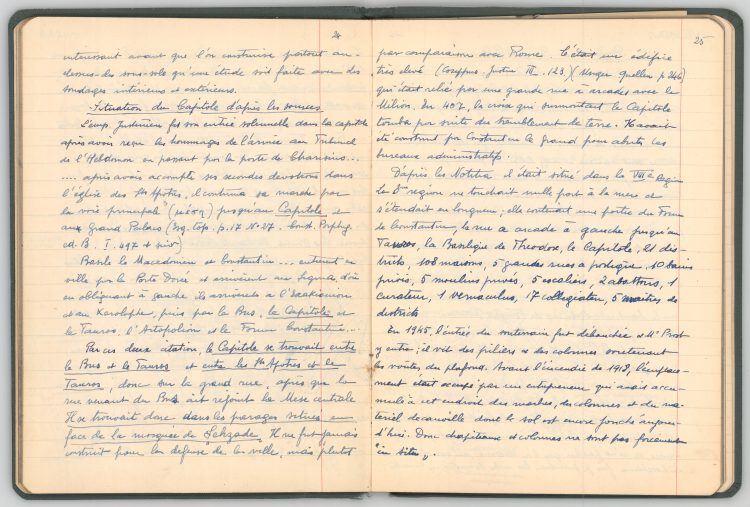 24
intéressant avant que l'on construise partout au-
dessus des sous-sols qu'une étude soit faite avec des
sondages intérieurs et extérieurs.
Situation du Capitole d'après les sources
L'emp. Justinien fit son entrée solennelle dans la capitale
après avoir reçu les hommages de l'armée au Tribunal
de l'Hebdomon en passant par la porte de Charisius...
.... après avoir accompli ses secondes dévotions dans
l'église des Sts Apôtres, il continua sa marche par
la voie principale" (μέση) jusqu'au Capitole et
au grand Palais (Byz. Top. p. 17 No 27. Const. Porphyg.
ed. B. I. 497 et suiv)
Basile le Macédonien et Constantin.... entrèrent en
ville par la Porte Dorée et arrivèrent au Sigma, d'où
en obliquant à gauche ils arrivèrent à l'Exokionion
et au Xerolophe, puis par le Bus, le Capitole et
le Tauros, l'Artopolion et le Forum Constantin...
Par ces deux citation, le Capitole se trouvait entre
le Bus et le Tauros et entre les Sts Apôtres et le
Tauros, donc sur la grand rue, après que la
rue venant du Bus ait rejoint la Mese centrale
Il se trouvait donc dans les parages situés en
face de la mosquée de Sehzade. Il ne fut jamais
construit pour la défense de la ville, mais plutôt
25
par comparaison avec Rome. C'était un édifice
très élevé (Cosippus. Justin III. 123) (Unger quellen p. 246)
qui était relié par une grande rue à arcades avec le
Milion. En 407, la croix qui surmontait le Capitole
tomba par suite des tremblement de terre. Il avait
été construit par Constantin le grand pour abriter les
bureaux administratifs.
D'après les Notitia il était situé dans la VIIIe Region
La 8me region ne touchait nulle part à la mer et
s'étendait en longueur; elle contenait une partie du Forum
de Constantin, la rue a arcade à gauche jusqu'au
Tauros, la Basilique de Theodose, le Capitole, 21 dis-
tricts, 108 maisons, 5 grandes rues a portique, 10 bains
privés, 5 moulins privés, 5 escaliers, 2 abattoirs, 1
curateur, 1 vernaculus, 17 collegiaten, 5 maîtres de
districts
En 1945, l'entrée du souterrain fut débouchée et Mr Prost
y entra; il vit des piliers et des colonnes soutenant
les voutes, du plafond. Avant l'incendie de 1912, l'emplace-
ment était occupé par un entrepreneur qui avait accu-
mulé a cet endroit des marbres, des colonnes et du ma-
tériel decauville dont le sol est encore jonché aujour-
d'hui. Donc chapiteaux et colonnes ne sont pas forcement
"in situ".